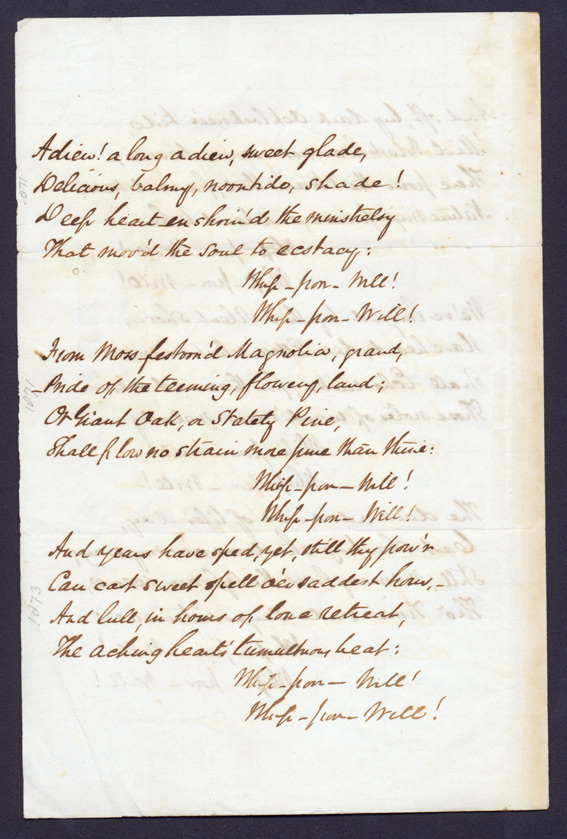 Adieu! a long adieu, sweet glade,
Delicious, balmy, noontide, shade!
Deep heart enshrin'd the minstrelsy
That mov'd the soul to ecstacy:
Whip-poor-Will!
Whip-poor-Will!
From Moss festoon'd Magnolia, grand,
Pride of the teeming, flowery, land;
Or Giant Oak, or Stately Pine,
Shall flow no strain more pure than thine:
Whip-poor-Will!
Whip-poor-Will!
And years have sped, yet, still thy pow'r
Can cast sweet spell o'er saddest hour,-
And lull, in hours of lone retreat,
The aching heart's tumultuous beat:
Whip-poor-Will!
Whip-poor-Will!
1871
1871
1873